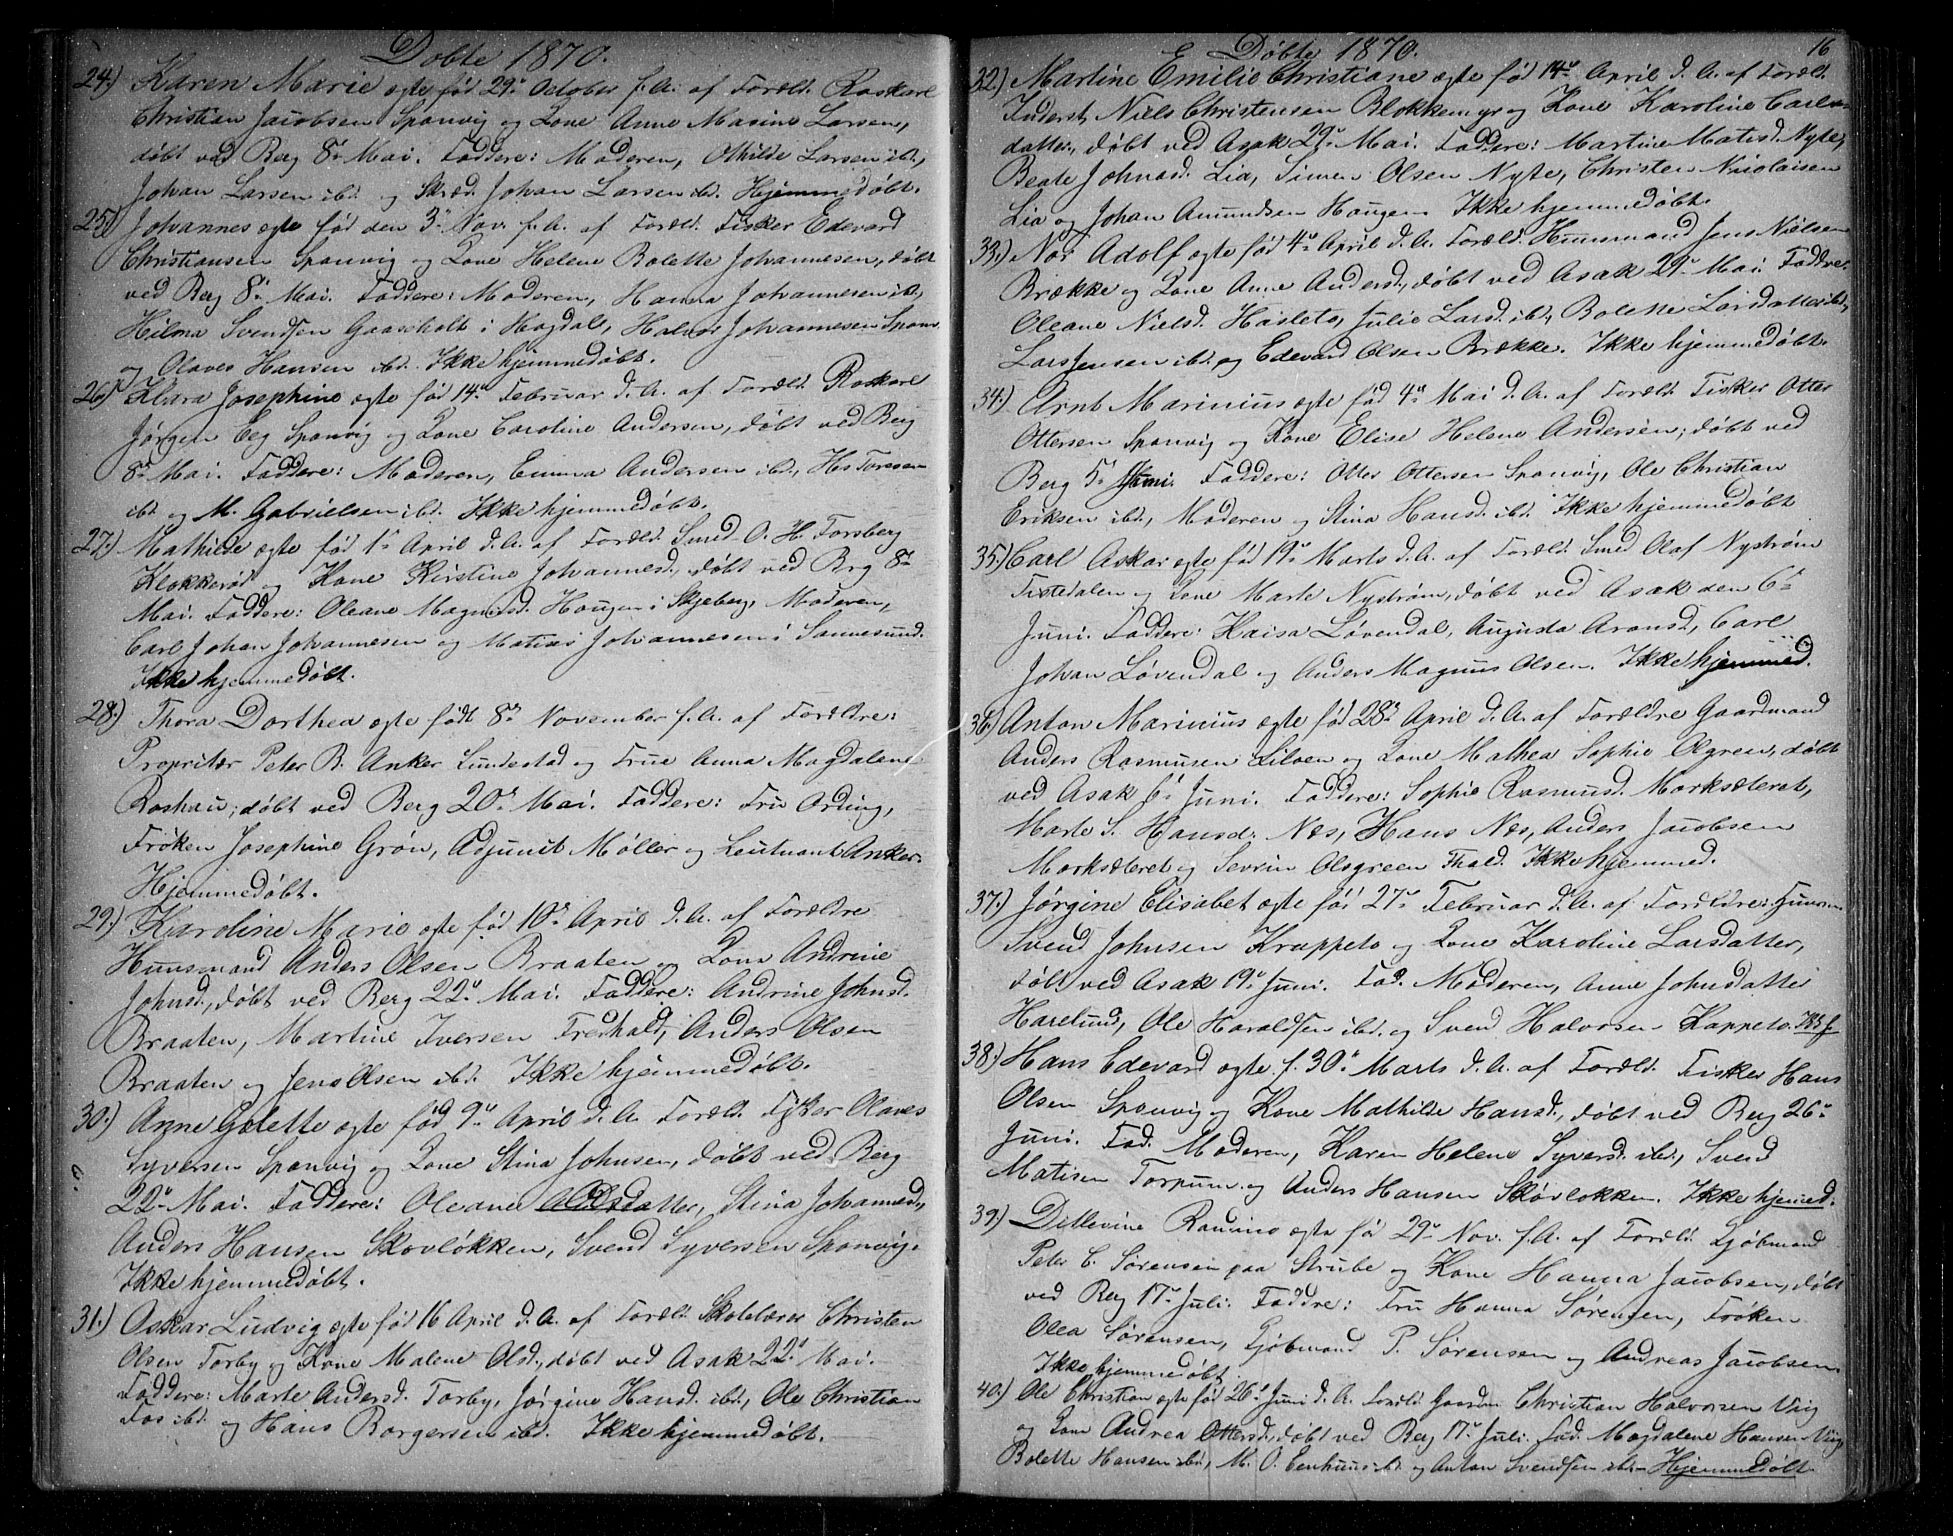 Døbte 1870.
24.) Karen Marie ægte fød 29de October f. A. af Foræld. Roskarl
Christian Jacobsen Sponvig og Kone Anne Masine Larsen,
døbt ved Berg 8de Mai. Faddere: Moderen, Othilde Larsen ibd.,
Johan Larsen ibd. og Skræd. Johan Larsen ibd. Hjemmedøbt.
25.) Johannes ægte fød den 3de Nov. f. A. af Foræld. Fisker Edevard
Christiansen Sponvig og Kone Helene Bolette Johannesen, døbt
ved Berg 8de Mai. Faddere: Moderen, Hanna Johannesen ibd.,
Hilma Svendsen Gaaseholt i Hogdal, Johannesen Sponv.
og Olaves Hansen ibd. Ikke hjemmedøbt.
26.) Klara Josephine ægte fød 14de Februar d. A. af Foræld. Roskarl
Jørgen Eeg Sponvig og Kone Caroline Andersen, døbt ved Berg
8de Mai. Faddere: Moderen, Emma Andersen ibd., Hs Toresen
ibd. og M. Gabrielsen ibd. Ikke hjemmedøbt.
27.) Mathilde ægte fød 1de April d. A. af Foræld. Smed O. H. Forsberg
Klokkerød og Kone Kirstine Johannesd., døbt ved Brg 8de
Mai. Faddere: Oleane Magnusd. Hougen i Skjeberg, Moderen,
Carl Johan Johannesen og Matias Johannesen i Sannesund.
Ikke hjemmedøbt.
28.) Thora Dorthea ægte født 8de November f. A. af Forældre:
Propritær Peter B. Anker Lundestad og Frue Anna Magdalene
Roshau; døbt ved Berg 20de Mai. Faddere: Fru Ording,
Frøken Josephine Grøn, Adjunct Møller og Leutnant Anker.
Hjemmedøbt.
29.) Karoline Marie ægte fød 10de April d. A. af Forældre
Huusmand Anders Olsen Braaten og Kone Andrine
Johnsd., døbt ved Berg 22de Mai. Faddere: Andrine Johnsd.
Braaten, Martine Iversen Fredhald, Anders Olsen
Braaten og Jens Olsen ibd. Ikke hjemmedøbt.
30.) Anne Golette ægte fød 9de April d. A. Foræld. Fisker Olaves
Syversen Sponvig og Kone Stina Johnsen, døbt ved Berg
22de Mai. Faddere: Oleane Olsdatter, Stina Johannesd.,
Anders Hansen Skovløkken, Svend Syversen Sponvig.
Ikke hjemmedøbt.
31.) Oskar Ludvig ægte fød 16 April d. A. af Foræld. Skolelærer Christen
Olsen Torby og Kone Malene Olsd., døbt ved Asak 22de Mai.
Faddere: Marte Andersd. Torby, Jørgine Hansd. ibd., Ole Christian
Fos ibd. og Hans Borgersen ibd. Ikke hjemmedøbt.
16
Døbte 1870.
32.) Martine Emilie Christiane ægte fød 14de April d. A. af Foræld.
Inderst Niels Christensen Blokkemyr og Kone Karoline Carls-
datter, døbt ved Asak 29de Mai. Faddere: Martine Matisd. Nyte,
Beate Johnsd. Lia, Simen Olsen Nyte, Christen Nicolaisen
Lia og Johan Amundsen Hougen. Ikke hjemmedøbt.
33.) Nor Adolf ægte fød 4de April d. A. Foræld. Huusmand Jens Nielsen
Brække og Kone Anne Andersd., døbt ved Asak 29de Mai. Faddre:
Oleane Nielsd. Hasleto, Julie Larsd. ibd., Bolette Larsdatter ibd.,
Lars Jensen ibd. og Edevard Olsen Brække. Ikke hjemmedøbt.
34.) Arnt Marinius ægte fød 4de Mai d. A. af Foræld. Fisker Otter
Ottersen Sponvig og Kone Elise Helene Andersen, døbt ved
Berg 5de Juni. Faddere: Otter Ottersen Sponvig, Ole Christian
Eriksen ibd., Moderen og Stina Hansd. ibd. Ikke hjemmedøbt
35.) Carl Askar ægte fød 19de Marts d. A. af Foræld. Smed Olaf Nystrøm
Tistedalen og Kone Marte Nystrøm, døbt ved Asak den 6de
Juni. Faddere: Kaisa Løvendal, Augusta Aronsd., Carl
Johan Løvendal og Anders Magnus Olsen. Ikke hjemmed.
36.) Anton Marinius ægte fød 28de April d. A. af Forældre Gaardmand
Anders Rasmusen Liloen og Kone Mathea Sophie Olgreen, døbt
ved Asak 6te Juni. Faddere: Sophie Rasmusd. Morksæteret,
Marte S. Hansd. Næs, Hans Næs, Anders Jacobsen
Morksæteret og Sevrin Olsgreen Fhald. Ikke hjemmed.
37.) Jørgine Elisabet ægte fød 27de Februar d. A. af Forældre: Huusm.
Svend Johnsen Krappeto og Kone Karoline Larsdatter,
døbt ved Asak 19de Juni. Fad. Moderen, Anne Johnsdatter
Harelund, Ole Haraldsen ibd. og Svend Halvorsen Kappeto.
38.) Hans Edevard ægte f. 30te Marts d. A. af Foræld. Fisker Hans
Olsen Sponvig og Kone Mathilde Hansd., døbt ved Berg 26de
Juni. Fad. Moderen, Karen Helene Syversd. ibd., Svend
Matisen Torpum og Anders Hansen Skovløkken. Ikke hjemed.
39.) Ditlevine Ranvine ægte fød 29de Nov. f. A. af Foræld. Kjøbmand
Peter C. Sørensen paa Strube og Kone Hanna Jacobsen, døbt
ved Berg 17de Juli. Faddre: Fru Hanna Sørensen, Frøken
Olea Sørensen, Kjøbmand P. Sørensen og Andreas Jacobsen.
Ikke hjemmedøbt
40.) Ole Christian ægte fød 26de Juni d. A. Foræld. Gaardm. Christian Halvorsen Viig
og Kone Andrea Ottersd., døbt ved Berg 17de Juli. Fad. Magdalene Hansen Viig
Bolette Hansen ibd., M. O. Eenhuus ibd. og Anton Svendsen ibd. Hjemmedøbt